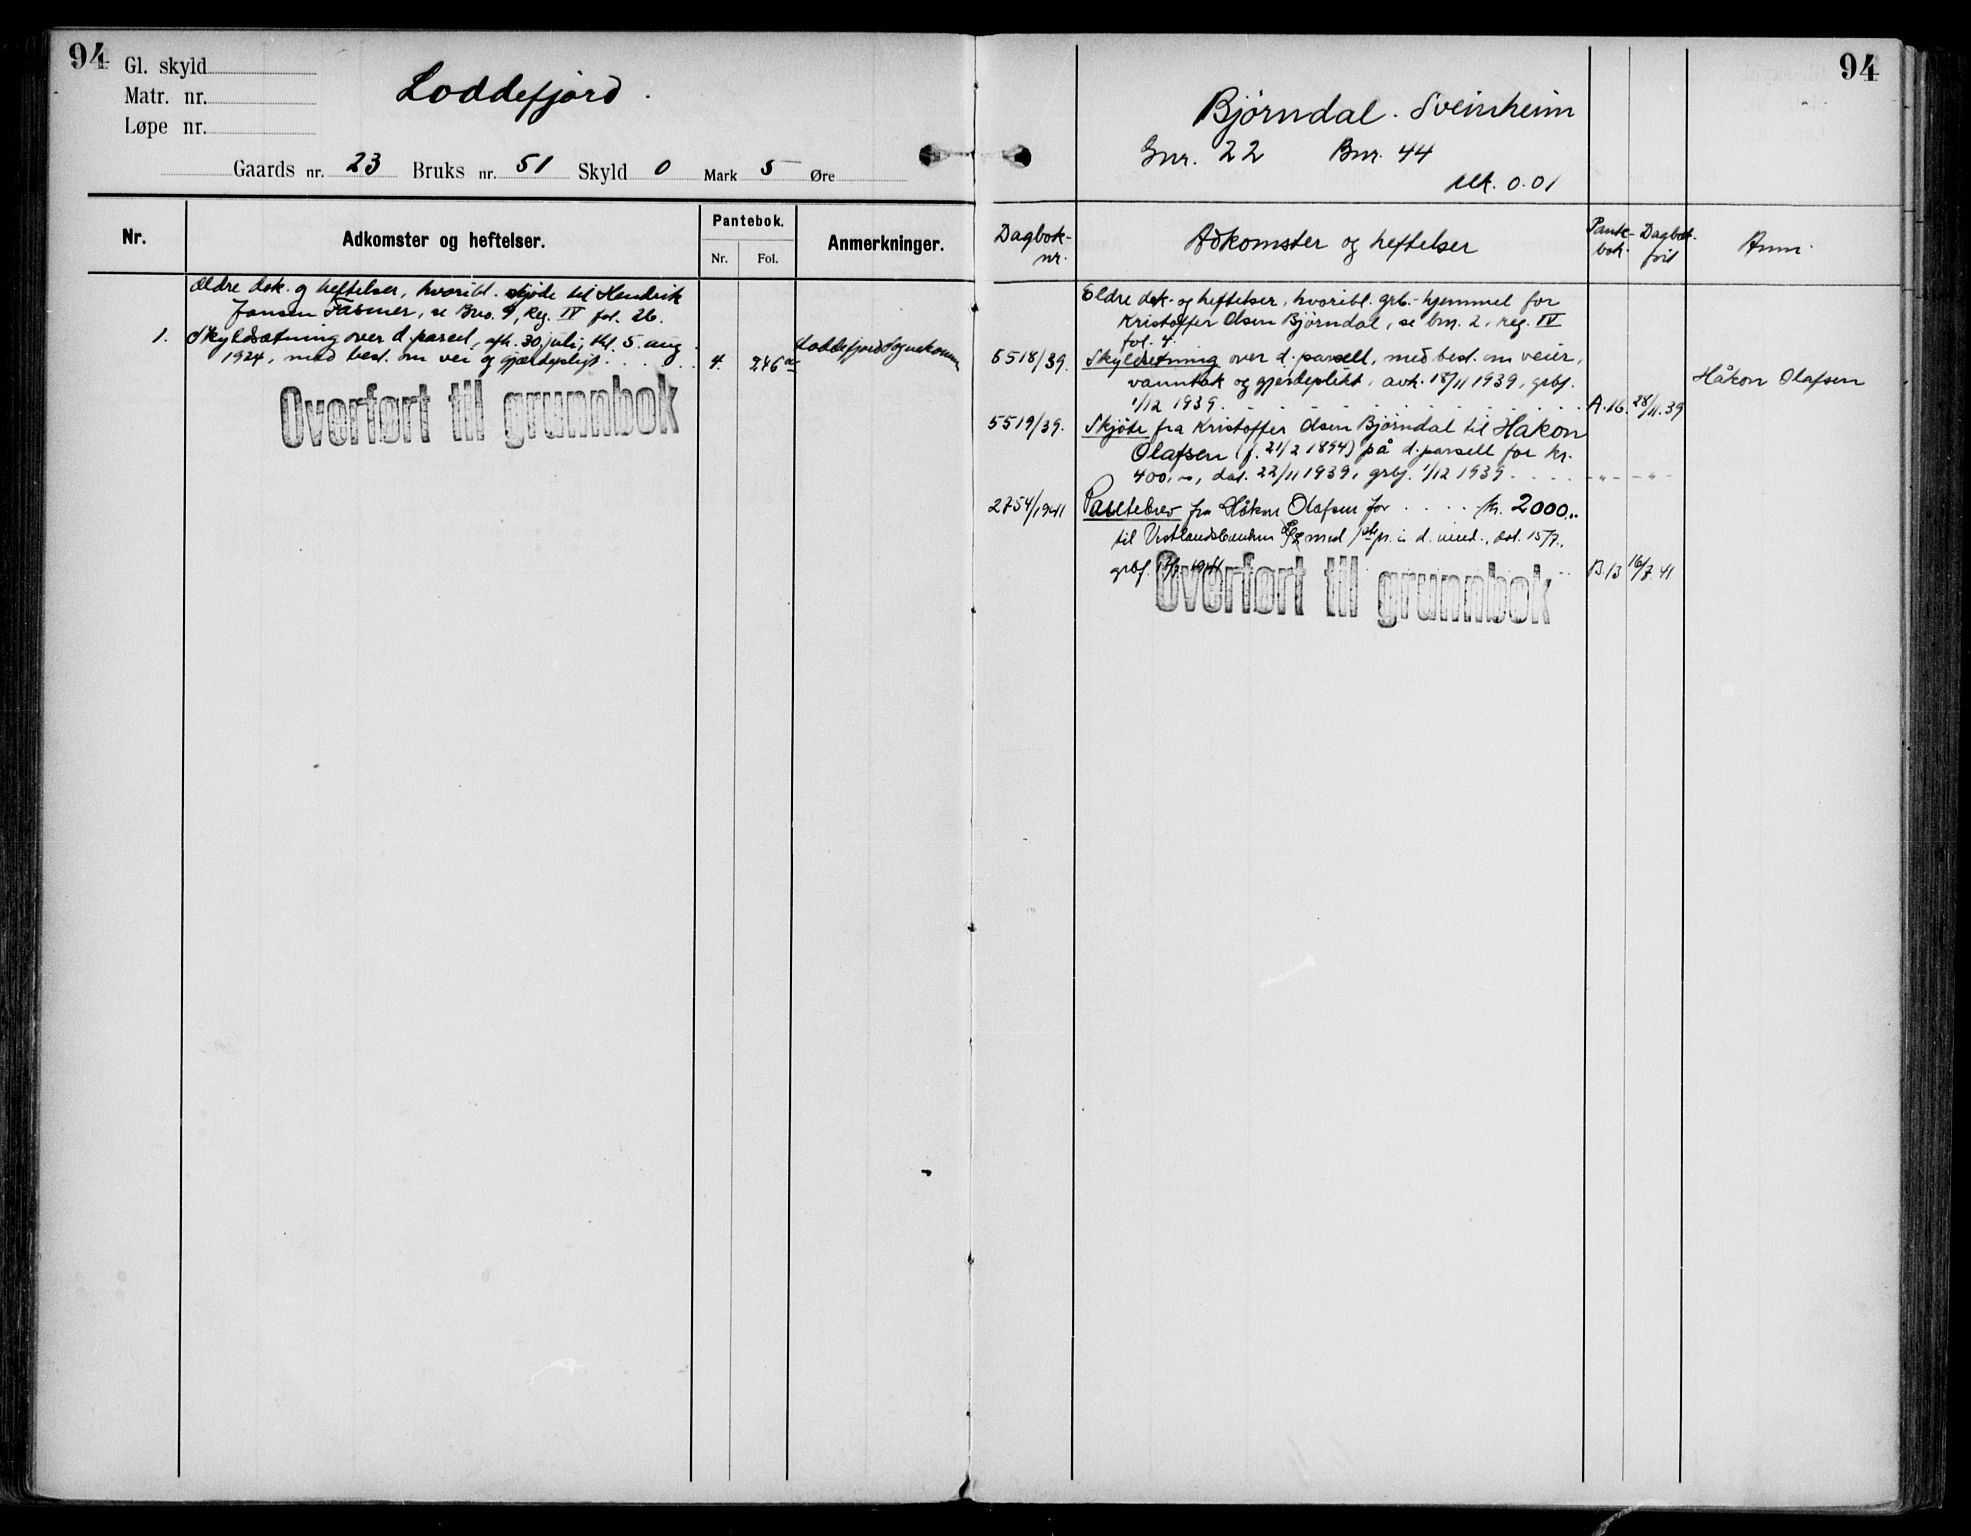 94
Gl. skyld
Matr. nr.
Løpe nr.
Loddefjord.
Gaards nr. 23 Bruks nr. 51 Skyld 0 Mark 5 Øre
Nr.
Adkomster og heftelser.
Pantebok.
Nr. Fol.
Anmerkninger.
Ældre dok. og heftelser, hvoribl. skjøde til Hendrik
Jansen Fabmer, se Bno. 9, Reg. IV fol. 26.
1. Skyldsætning over d. parcel, afh. 30 juli, thl 5. aug.
1924, med best. om vei og gjærdepligt. 4. 246
Loddefjord Sognekommune
Overført til grunnbok
94
Bjørndal. Sveinheim
Gnr. 22 Bnr. 44
Mk. 0.01
Dagbok-
nr.
Adkomster og heftelser
Pante-
bok.
Dagbok-
ført
Anm.
Eldre dok. og heftelser, hvoribl. grb.-hjemmel for
Kristoffer Olsen Bjørndal, se bnr. 2, reg. IV
fol. 4.
5518/39. Skyldsetning over d. parsell, med best. om veier,
vanntak og gjerdeplikt, avh. 18/11 1939, grbf.
1/12 1939. A.16. 28/11.39
Håkon Olafsen
5519/39. Skjøte fra Kristoffer Olsen Bjørndal til Håkon
Olafsen (f. 21/2 1894) på d. parsell for kr.
400,-, dat. 22/11 1939, grbf. 1/12 1939. -"- -"-
2754/1941 Pantebrev fra Håkon Olafsen for kr. 2000,-
til Vestlandsbanken med pr. i d. eiend., dat. 15/7.,
grbf. 1941 B.13 16/7.41
Overført til grunnbok